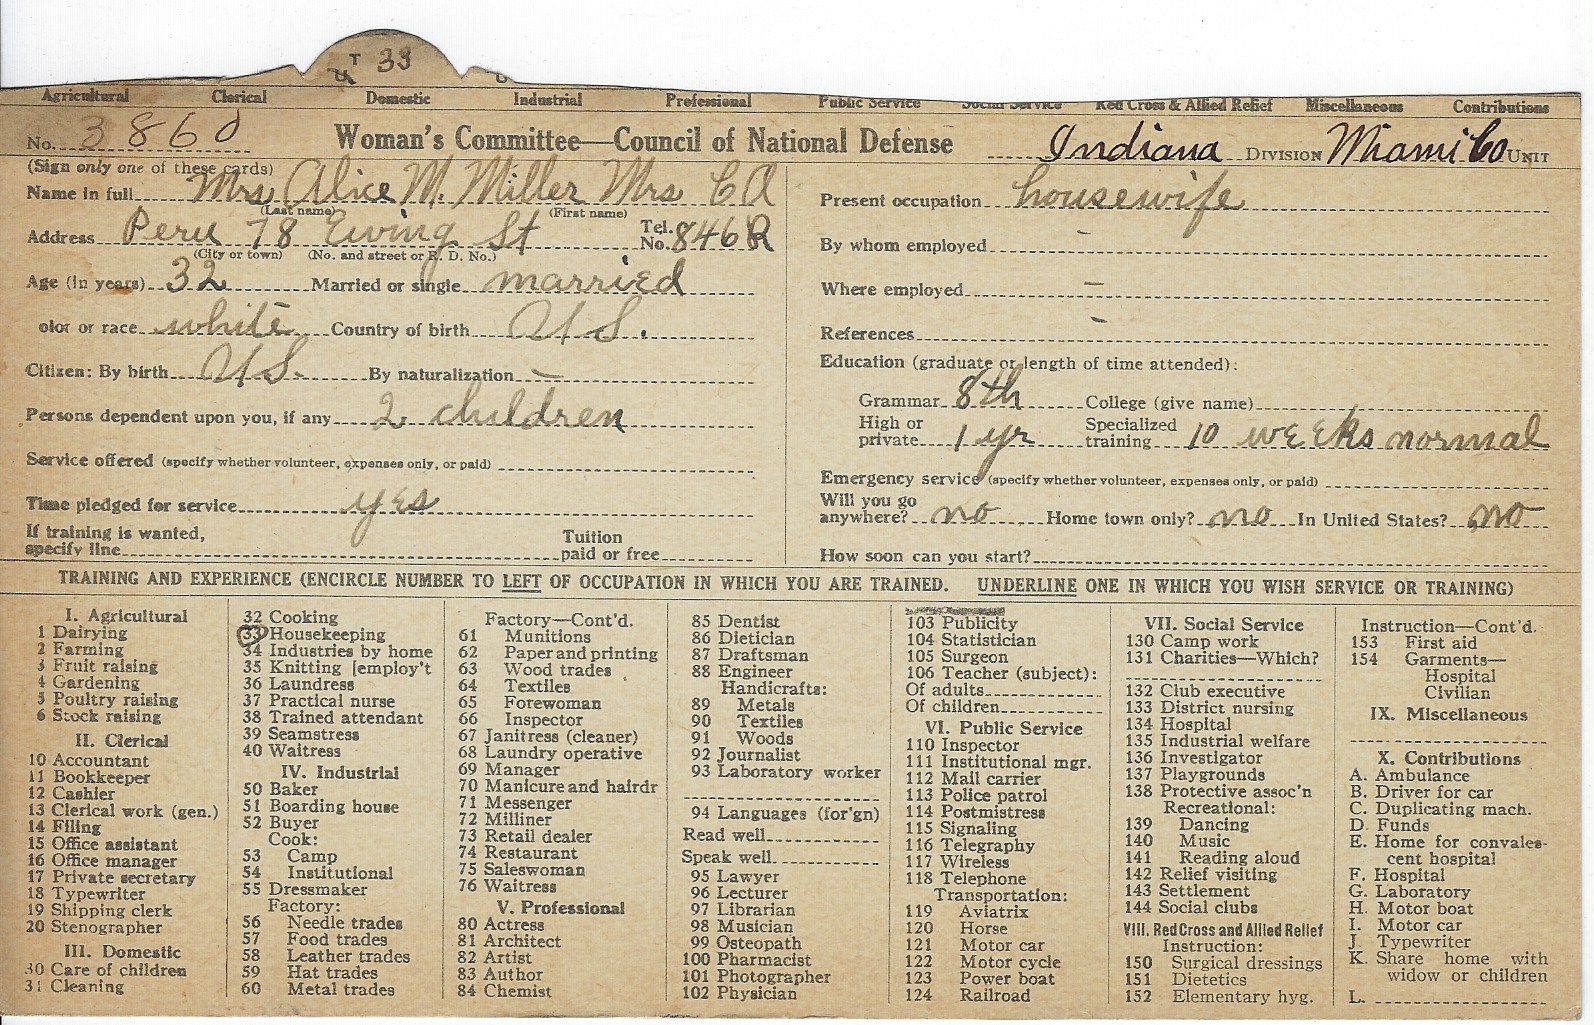 T 33
Agricultural Clerical Domestic Industrial Professional Public Service Social Service Red Cross & Allied Relief Miscellaneous Contributions
No. 3860 Woman's Committee—Council of National Defense Indiana DIVISION Miami Co UNIT
(Sign only one of these cards)
Name in full Mrs Alice M. Miller Mrs C A
(Last name) (First name)
Address Peru 78 Ewing St Tel. No. 846 R
(City or town) (No. and street or R. D. No.)
Age (in years) 32 Married or single married
olor or race white Country of birth U S.
Citizen: By birth U S. By naturalization —
Persons dependent upon you, if any 2 children
Service offered (specify whether volunteer, expenses only, or paid)
Time pledged for service yes
If training is wanted,
specify line Tuition paid or free
Present occupation housewife
By whom employed -
Where employed -
References -
Education (graduate or length of time attended):
Grammar 8th College (give name)
High or private 1 yr Specialized training 10 weeks normal
Emergency service (specify whether volunteer, expenses only, or paid)
Will you go
anywhere? no Home town only? no In United States? no
How soon can you start?
TRAINING AND EXPERIENCE (ENCIRCLE NUMBER TO LEFT OF OCCUPATION IN WHICH YOU ARE TRAINED. UNDERLINE ONE IN WHICH YOU WISH SERVICE OR TRAINING)
I. Agricultural
1 Dairying
2 Farming
3 Fruit raising
4 Gardening
5 Poultry raising
6 Stock raising
II. Clerical
10 Accountant
11 Bookkeeper
12 Cashier
13 Clerical work (gen.)
14 Filing
15 Office assistant
16 Office manager
17 Private secretary
18 Typewriter
19 Shipping clerk
20 Stenographer
III. Domestic
30 Care of children
31 Cleaning
32 Cooking
33 Housekeeping
34 Industries by home
35 Knitting [employ't
36 Laundress
37 Practical nurse
38 Trained attendant
39 Seamstress
40 Waitress
IV. Industrial
50 Baker
51 Boarding house
52 Buyer
Cook:
53 Camp
54 Institutional
55 Dressmaker
Factory:
56 Needle trades
57 Food trades
58 Leather trades
59 Hat trades
60 Metal trades
Factory—Cont'd.
61 Munitions
62 Paper and printing
63 Wood trades
64 Textiles
65 Forewoman
66 Inspector
67 Janitress (cleaner)
68 Laundry operative
69 Manager
70 Manicure and hairdr
71 Messenger
72 Milliner
73 Retail dealer
74 Restaurant
75 Saleswoman
76 Waitress
V. Professional
80 Actress
81 Architect
82 Artist
83 Author
84 Chemist
85 Dentist
86 Dietician
87 Draftsman
88 Engineer
Handicrafts:
89 Metals
90 Textiles
91 Woods
92 Journalist
93 Laboratory worker
94 Languages (for'gn)
Read well
Speak well
95 Lawyer
96 Lecturer
97 Librarian
98 Musician
99 Osteopath
100 Pharmacist
101 Photographer
102 Physician
103 Publicity
104 Statistician
105 Surgeon
106 Teacher (subject):
Of adults
Of children
VI. Public Service
110 Inspector
111 Institutional mgr.
112 Mail carrier
113 Police patrol
114 Postmistress
115 Signaling
116 Telegraphy
117 Wireless
118 Telephone
Transportation:
119 Aviatrix
120 Horse
121 Motor car
122 Motor cycle
123 Power boat
124 Railroad
VII. Social Service
130 Camp work
131 Charities—Which?
132 Club executive
133 District nursing
134 Hospital
135 Industrial welfare
136 Investigator
137 Playgrounds
138 Protective assoc'n
Recreational:
139 Dancing
140 Music
141 Reading aloud
142 Relief visiting
143 Settlement
144 Social clubs
VIII. Red Cross and Allied Relief
Instruction:
150 Surgical dressings
151 Dietetics
152 Elementary hyg.
Instruction—Cont'd.
153 First aid
154 Garments—
Hospital
Civilian
IX. Miscellaneous
X. Contributions
A. Ambulance
B. Driver for car
C. Duplicating mach.
D. Funds
E. Home for convales-
cent hospital
F. Hospital
G. Laboratory
H. Motor boat
I. Motor car
J. Typewriter
K. Share home with
widow or children
L.